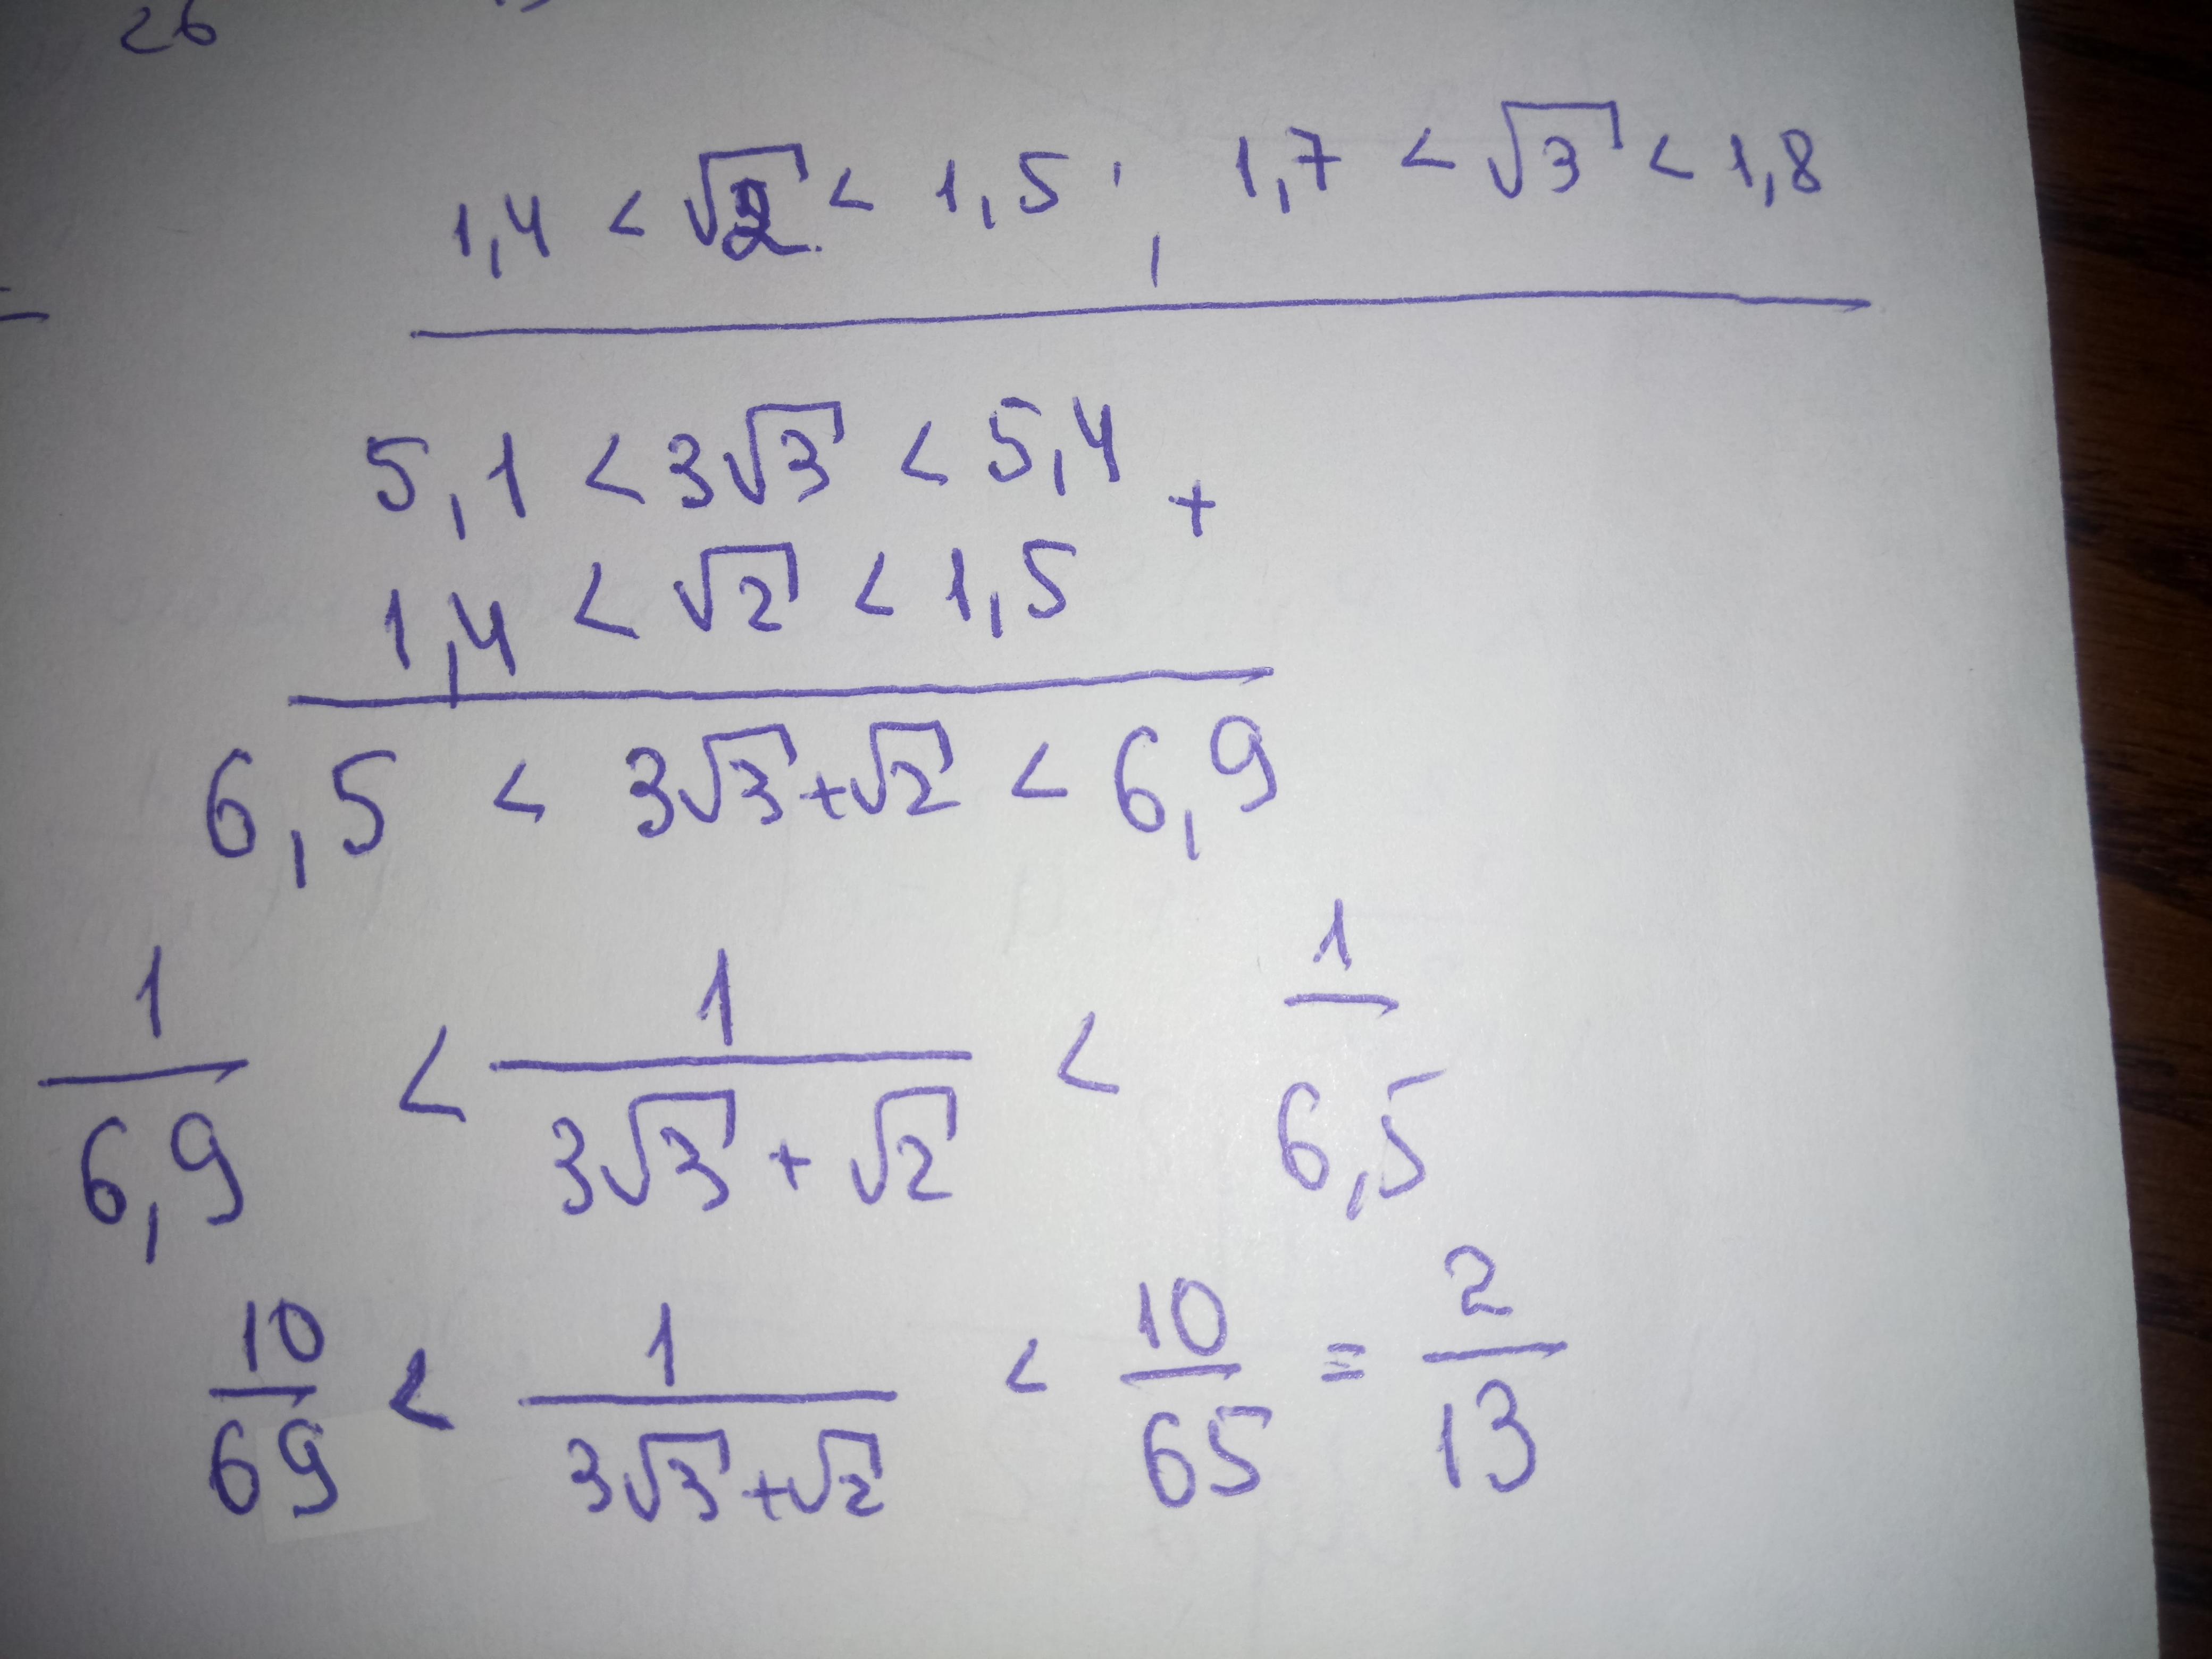 26
1,4 < √2 < 1,5 ; 1,7 < √3 < 1,8
5,1 < 3√3 < 5,4 +
1,4 < √2 < 1,5
6,5 < 3√3+√2 < 6,9
1/6,9 < 1/(3√3 + √2) < 1/6,5
10/69 < 1/(3√3+√2) < 10/65 = 2/13